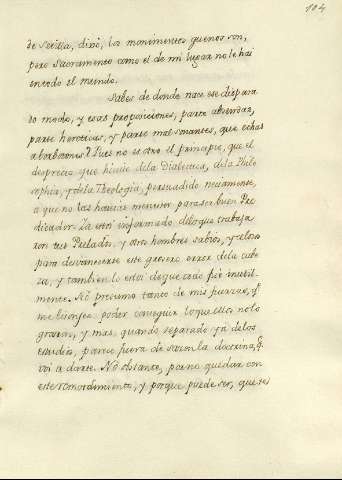 104
de Sevilla, dixo, los monimentos guenos son,
pero Sacramento como el de mi lugar no le hai
en todo el mundo.
Sabes de donde nace ese dispara
do modo, y esas proposiciones, parte absurdas,
parte hereticas, y parte mal sonantes, que echas
a borbotones? Pues no es otro el principio, que el
desprecio que hiciste de la Dialectica, de la Philo
sophia, y de la Theologia, persuadido neciamente,
a que no las havias menester para ser buen Pre
dicador. Ya estoi informado de lo que trabaja
ron tus Prelados, y otros hombres sabios, y zelosos
para desvanecerte este grosero error de la cabe
za, y tambien lo estoi de que todo fue inutil-
mente. No presumo tanto de mis fuerzas, que
me lisonjee poder conseguir lo que ellos no lo
graron, y mas, quando separado ya de los
estudios, parece fuera de sazon la doctrina, q.
voi a darte. No obstante, por no quedar con
este remordimiento, y porque puede ser, que te